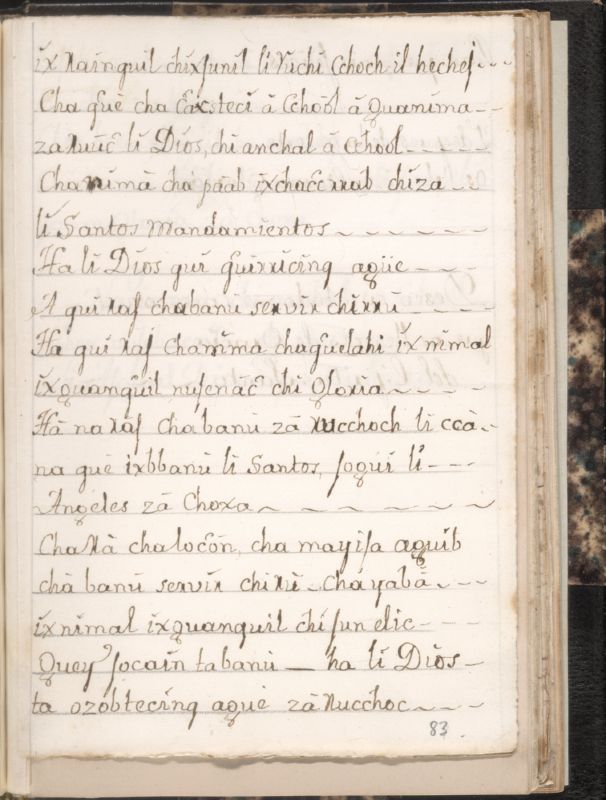 ix Rainquil chixjunil li Ruchi Cchoch il hechej
Cha què cha Caxsteci à Cchööl à quanima
za Ruuc li Dios, chi anchal à Cchool
Chanimà cha pâab ixchacc rub chiza
li Santos Mandamientos
Ha li Dios qui quirricinq aqüe
A qui Raj chabanu servir chirru
Ha qui Raj Chanima chaquelahi ix nimal
ixquanquil nusenàc chi Gloria
Hà na Raj chabanù zà Rucchoch li ccà
na què ixbbanù li Santos, soqui li
Angeles zà Choxa
Cha Rà chalocon, cha mayisa aquib
chà banù servir chi Rù Chayabà
ix nimal ixquanquil chi jun elic
Quey socain tabanù ha li Dios
ta ozobtecinq aquè zà Rucchoc
83